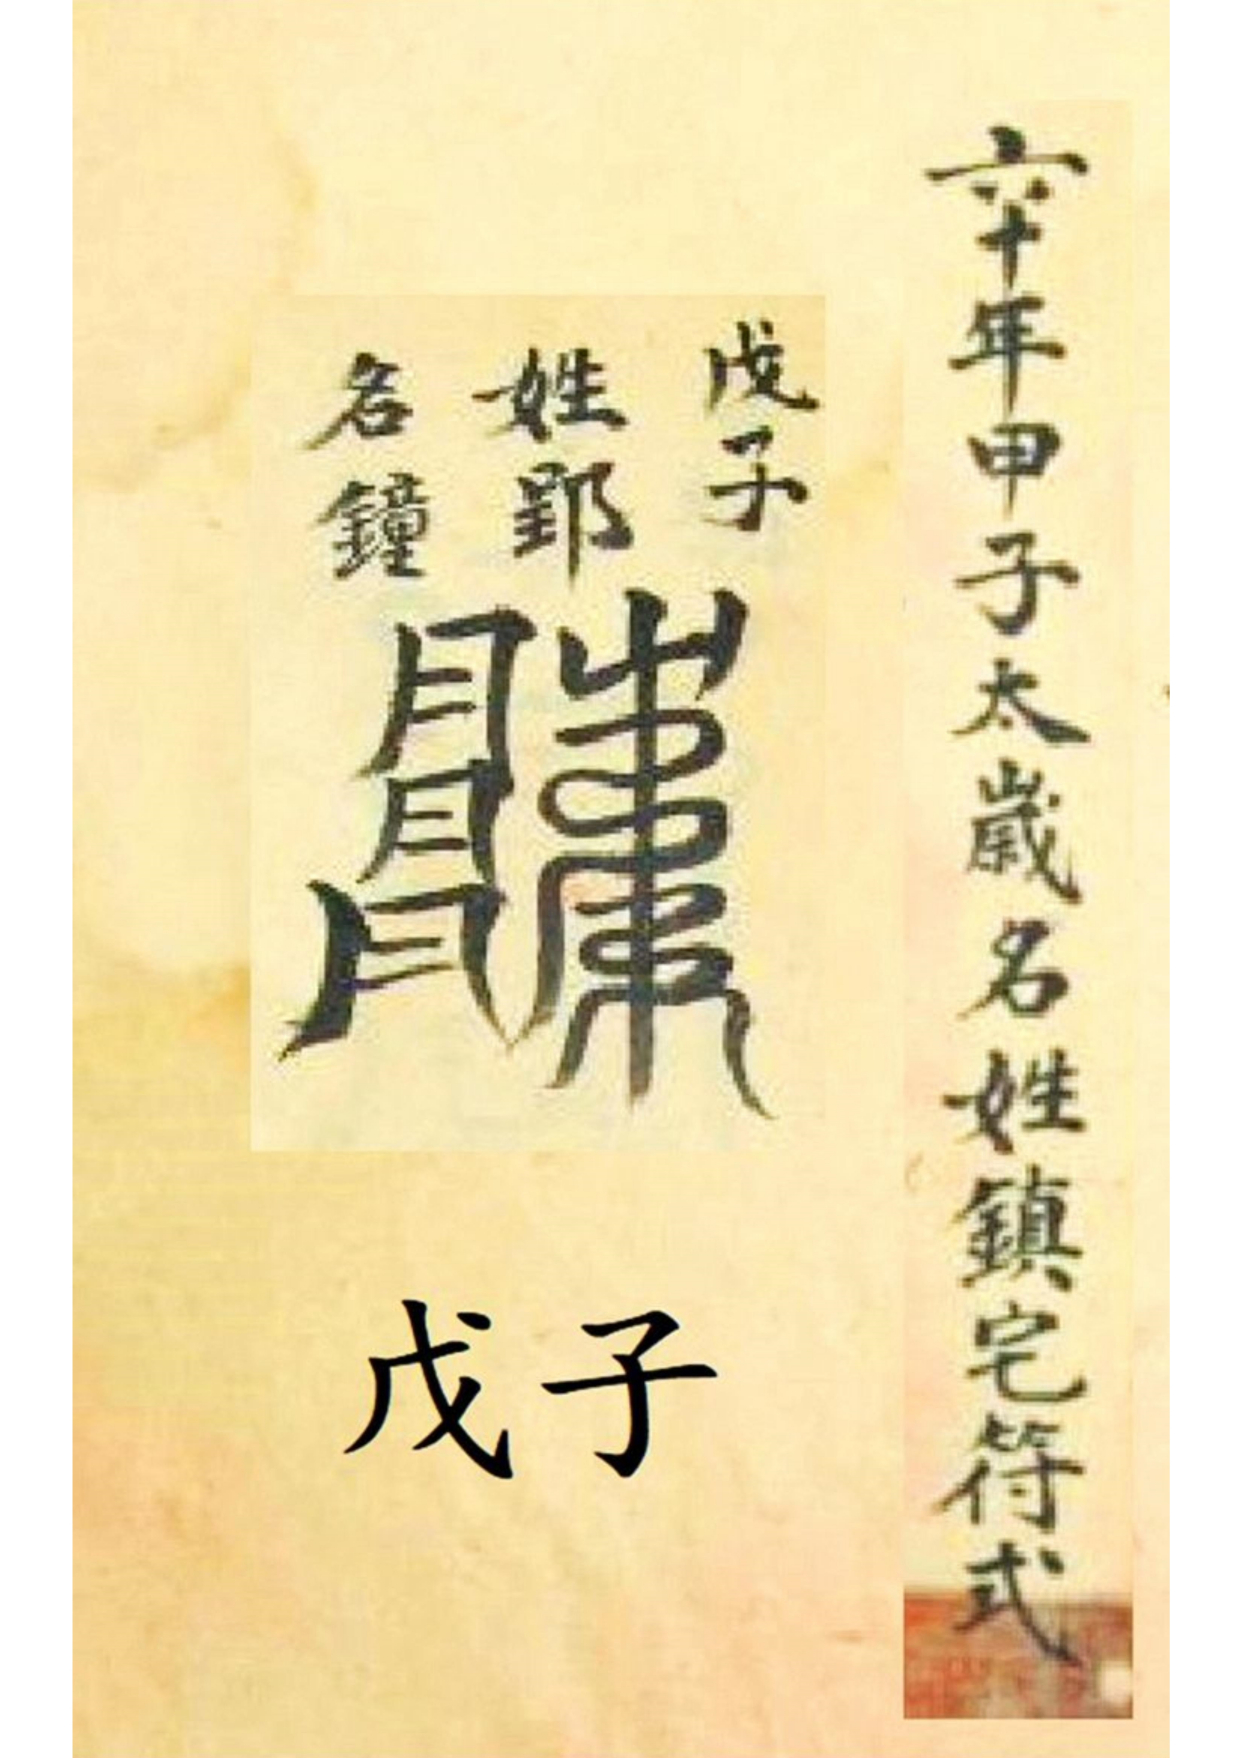 六十年甲子太歲名姓鎮宅符式
戊子
姓郢
名鐘
戊子